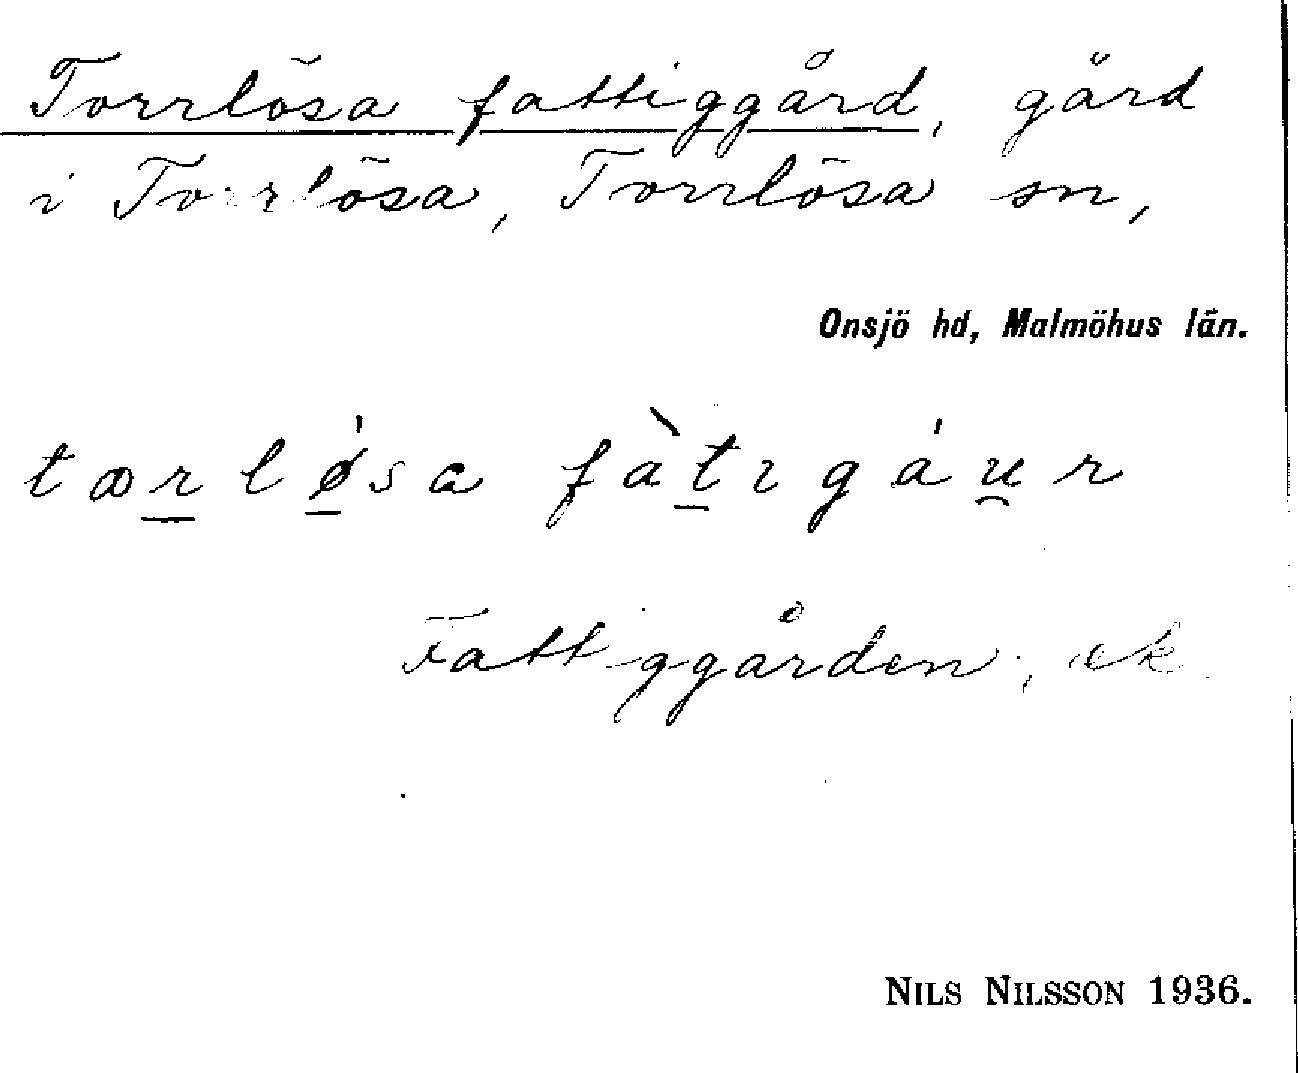 Torrlösa fattiggård, gård
i Torrlösa, Torrlösa sn,
Onsjö hd, Malmöhus län.
tꝏrlǿ̱sa fàṯıgáu̯r
Fattiggården, ek.
NILS NILSSON 1936.